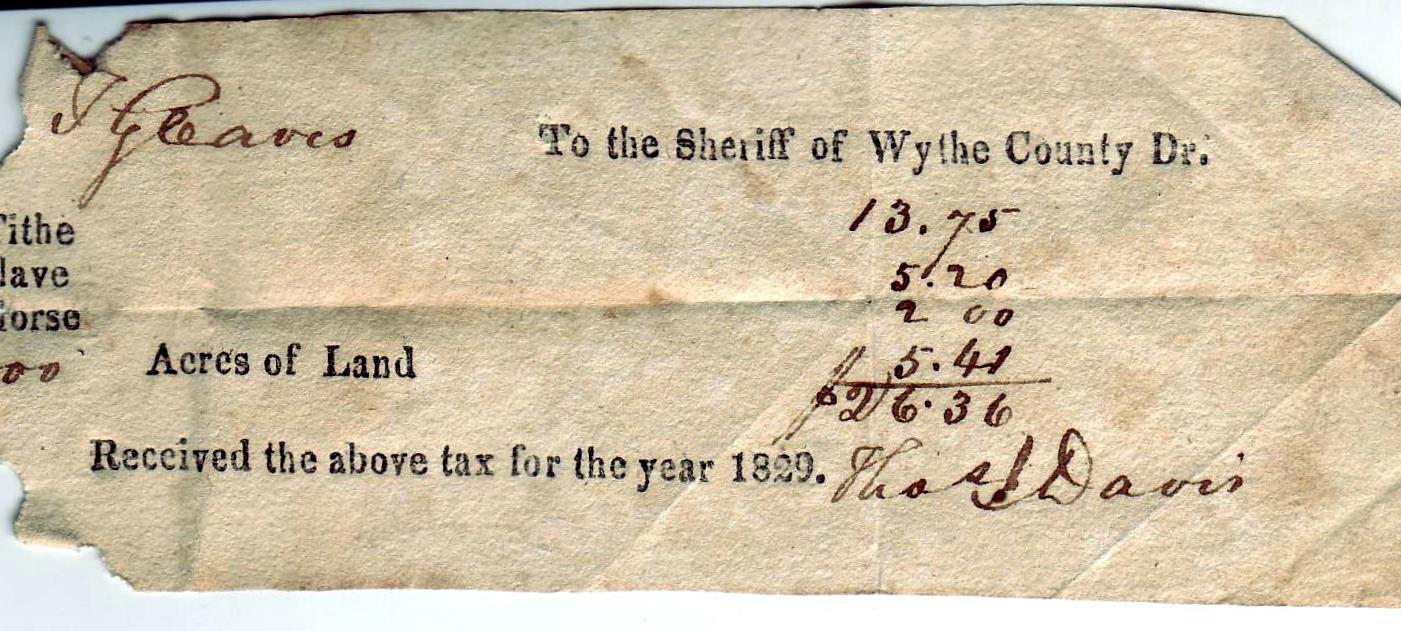 J Gleaves
To the Sheriff of Wythe County Dr.
Tithe 13.75
lave 5.20
orse 2 00
00 Acres of Land 5.41
$26.36
Received the above tax for the year 1829. Thos J Davis